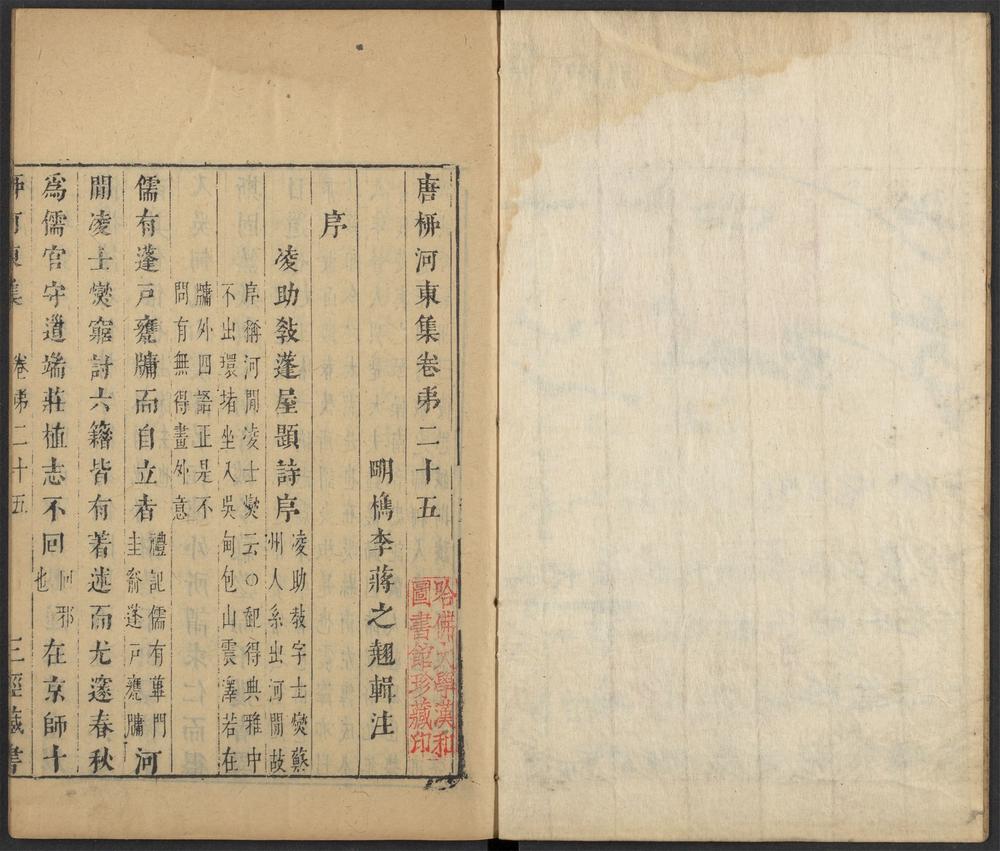 唐柳河東集卷弟二十五
明檇李蔣之翹輯注
序
凌助敎蓬屋題詩序
凌助敎字士燮蘇
州人系出河閒故
序稱河閒凌士燮云○觀得典雅中
不出環堵坐入吳甸包山震澤若在
牖外四語正是不
問有無得畫外意
儒有蓬戶甕牖而自立者
禮記儒有蓽門
圭窬蓬戶甕牖
河
閒凌士燮窮討六籍皆有著述而尤邃春秋
爲儒官守道端莊植志不回
回邪
也
在京師十
柳河東集
卷弟二十五
三徑藏書
哈佛大學漢和
圖書館珍藏印